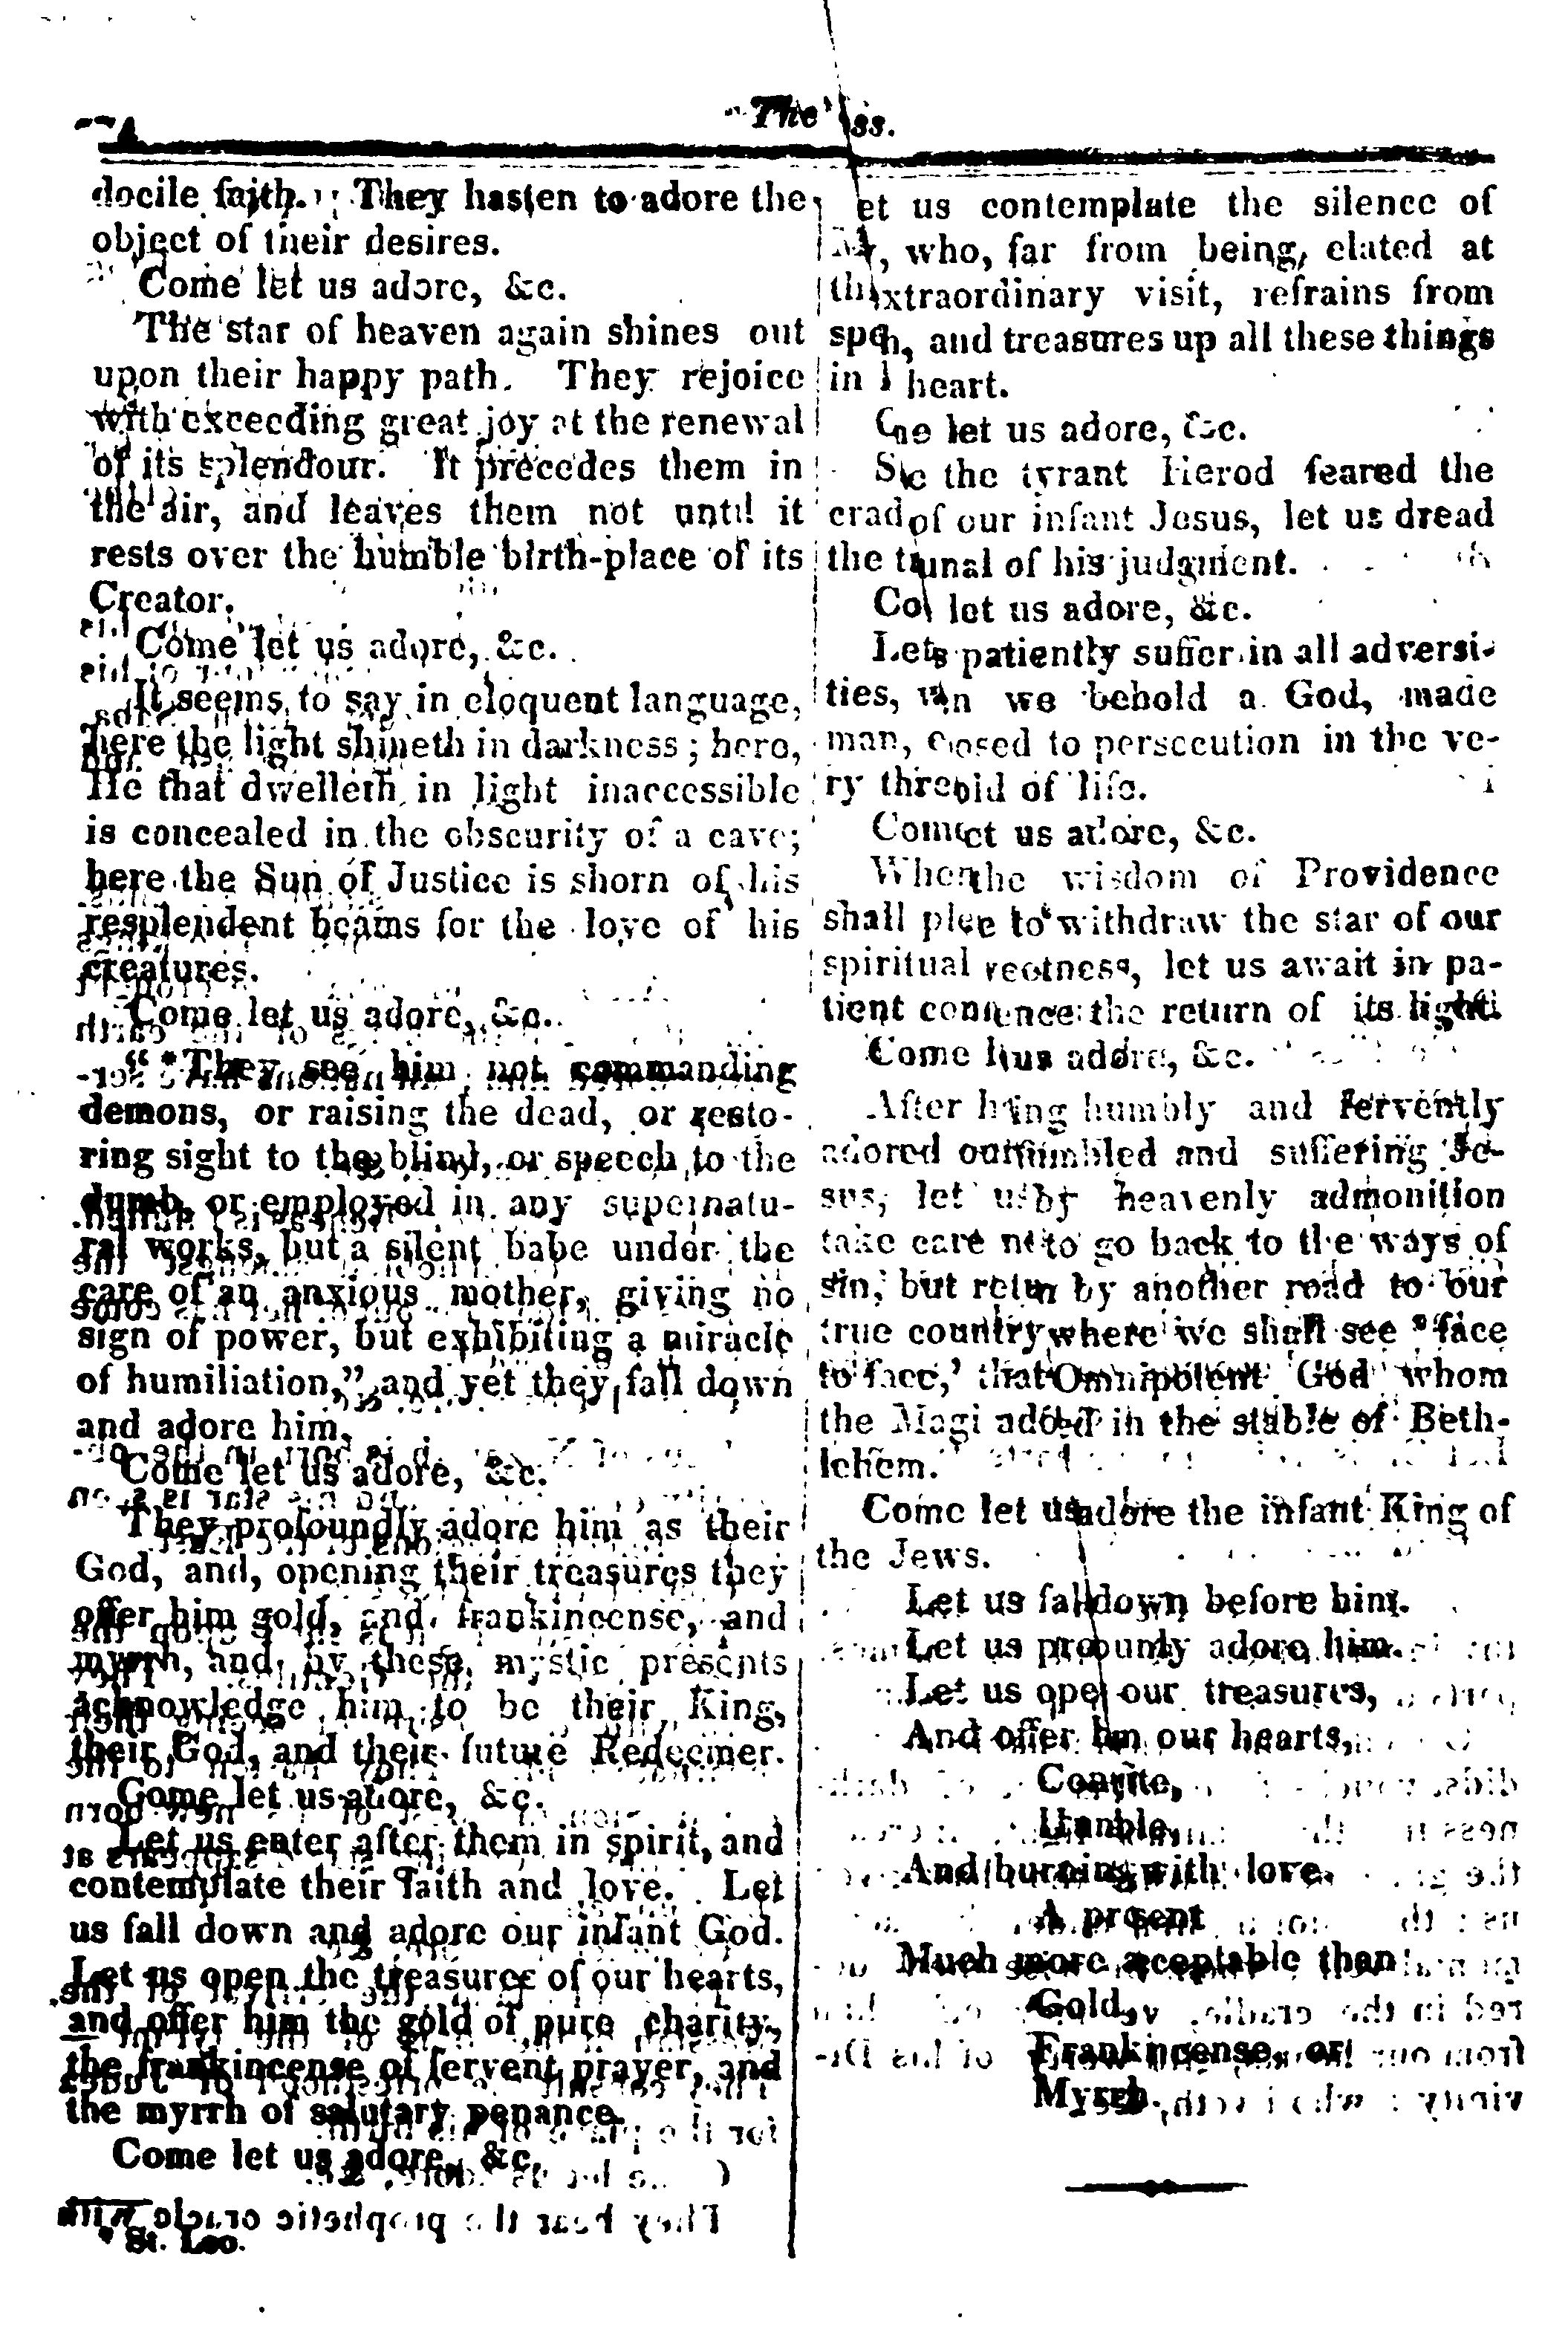 The ss.
docile faith. They hasten to adore the
object of their desires.
Come let us adore, &c.
The star of heaven again shines out
upon their happy path. They rejoice
with exceeding great joy at the renewal
of its splendour. It precedes them in
the air, and leaves them not until it
rests over the humble birth-place of its
Creator.
Come let us adore, &c.
It seems to say in eloquent language,
here the light shineth in darkness; here,
He that dwelleth in light inaccessible
is concealed in the obscurity of a cave;
here the Sun of Justice is shorn of his
resplendent beams for the love of his
creatures.
Come let us adore, &c.
"*They see him not commanding
demons, or raising the dead, or resto-
ring sight to the blind, or speech to the
dumb, or employed in any supernatu-
ral works, but a silent babe under the
care of an anxious mother, giving no
sign of power, but exhibiting a miracle
of humiliation," and yet they fall down
and adore him.
Come let us adore, &c.
They profoundly adore him as their
God, and, opening their treasures they
offer him gold, and frankincense, and
myrrh, and by these mystic presents
acknowledge him to be their King,
their God, and their future Redeemer.
Come let us adore, &c.
Let us enter after them in spirit, and
contemplate their faith and love. Let
us fall down and adore our infant God.
Let us open the treasures of our hearts,
and offer him the gold of pure charity,
the frankincense of fervent prayer, and
the myrrh of salutary penance.
Come let us adore, &c.
* St. Leo.
et us contemplate the silence of
who, far from being, elated at
xtraordinary visit, refrains from
and treasures up all these things
in heart.
let us adore, &c.
the tyrant Herod feared the
of our infant Jesus, let us dread
the of his judgment.
let us adore, &c.
patiently suffer in all adversi-
ties, we behold a God, made
man, to persecution in the ve-
ry of life.
us adore, &c.
the wisdom of Providence
shall to withdraw the star of our
spiritual let us await in pa-
tient the return of its light.
Come us adore, &c.
After humbly and fervently
adored and suffering Je-
sus, let us by heavenly admonition
take care to go back to the ways of
sin, but by another road to our
true country where we shall see "face
to face,' that Omnipotent God whom
the Magi in the stable of Beth-
lehem.
Come let us adore the infant King of
the Jews.
Let us fall down before him.
Let us adore him.
Let us open our treasures,
And offer him our hearts,
Contrite,
Humble,
And burning with love.
A present
Much more acceptable than
Gold,
Frankincense, or
Myrrh.